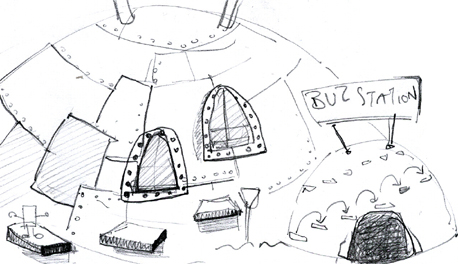 BUZ STATION